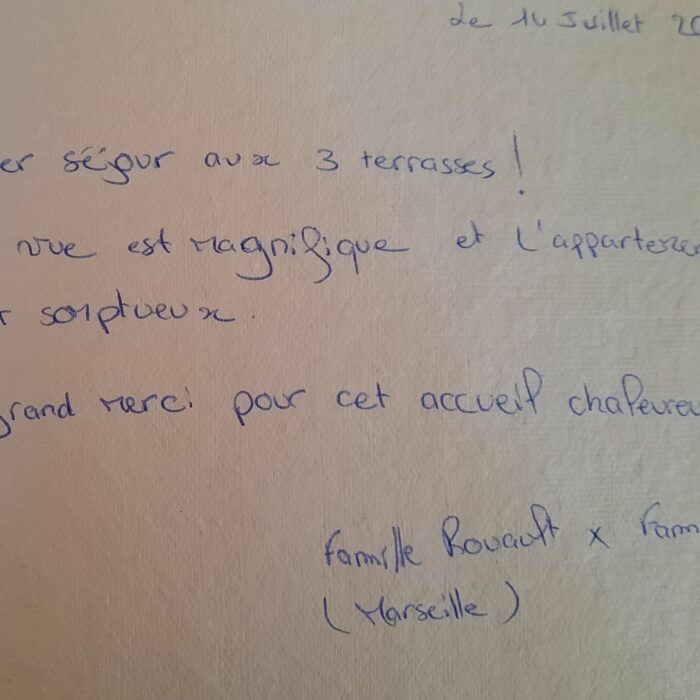 Le 14 Juillet 20
er séjour aux 3 terrasses !
vue est magnifique et l'apparteme
somptueux.
grand merci pour cet accueil chaleureu
Famille Rouault x Fam
(Marseille)